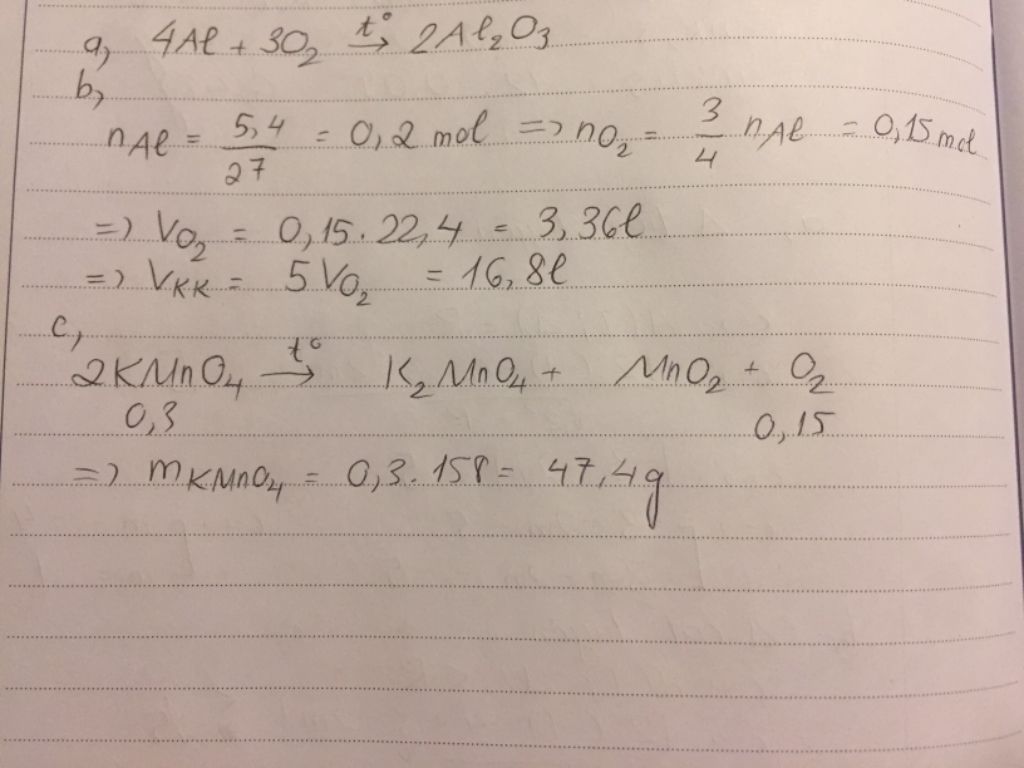 a, 4Al + 3O₂ →t° 2Al₂O₃
b,
nAl = 5,4/27 = 0,2 mol => nO₂ = 3/4 nAl = 0,15 mol
=> VO₂ = 0,15.22,4 = 3,36l
=> VKK = 5VO₂ = 16,8l
c,
2KMnO₄ →t° K₂MnO₄ + MnO₂ + O₂
0,3 0,15
=> mKMnO₄ = 0,3.158 = 47,4g